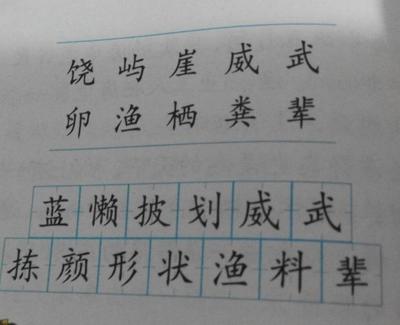 饶屿崖威武
卵渔栖粪辈
蓝懒披划威武
拣颜形状渔料辈